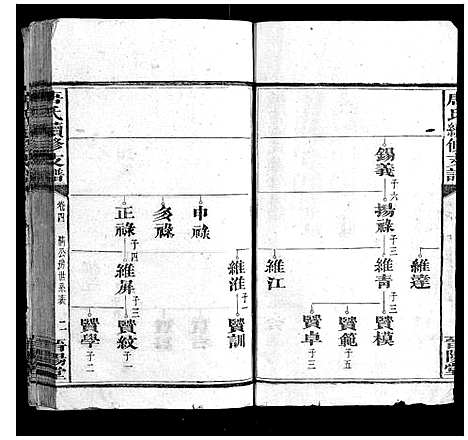 唐氏續修支譜
錫義
子六
揚祿
子三
維達
維青
子三
維江
賢模
子三
賢範
子五
賢卓
子三
申祿
亥祿
正祿
子四
維淮
子一
維屏
子三
賢訓
賢紋
子一
賢學
子二
唐氏續修支譜
卷四
公房世系表
晉陽堂